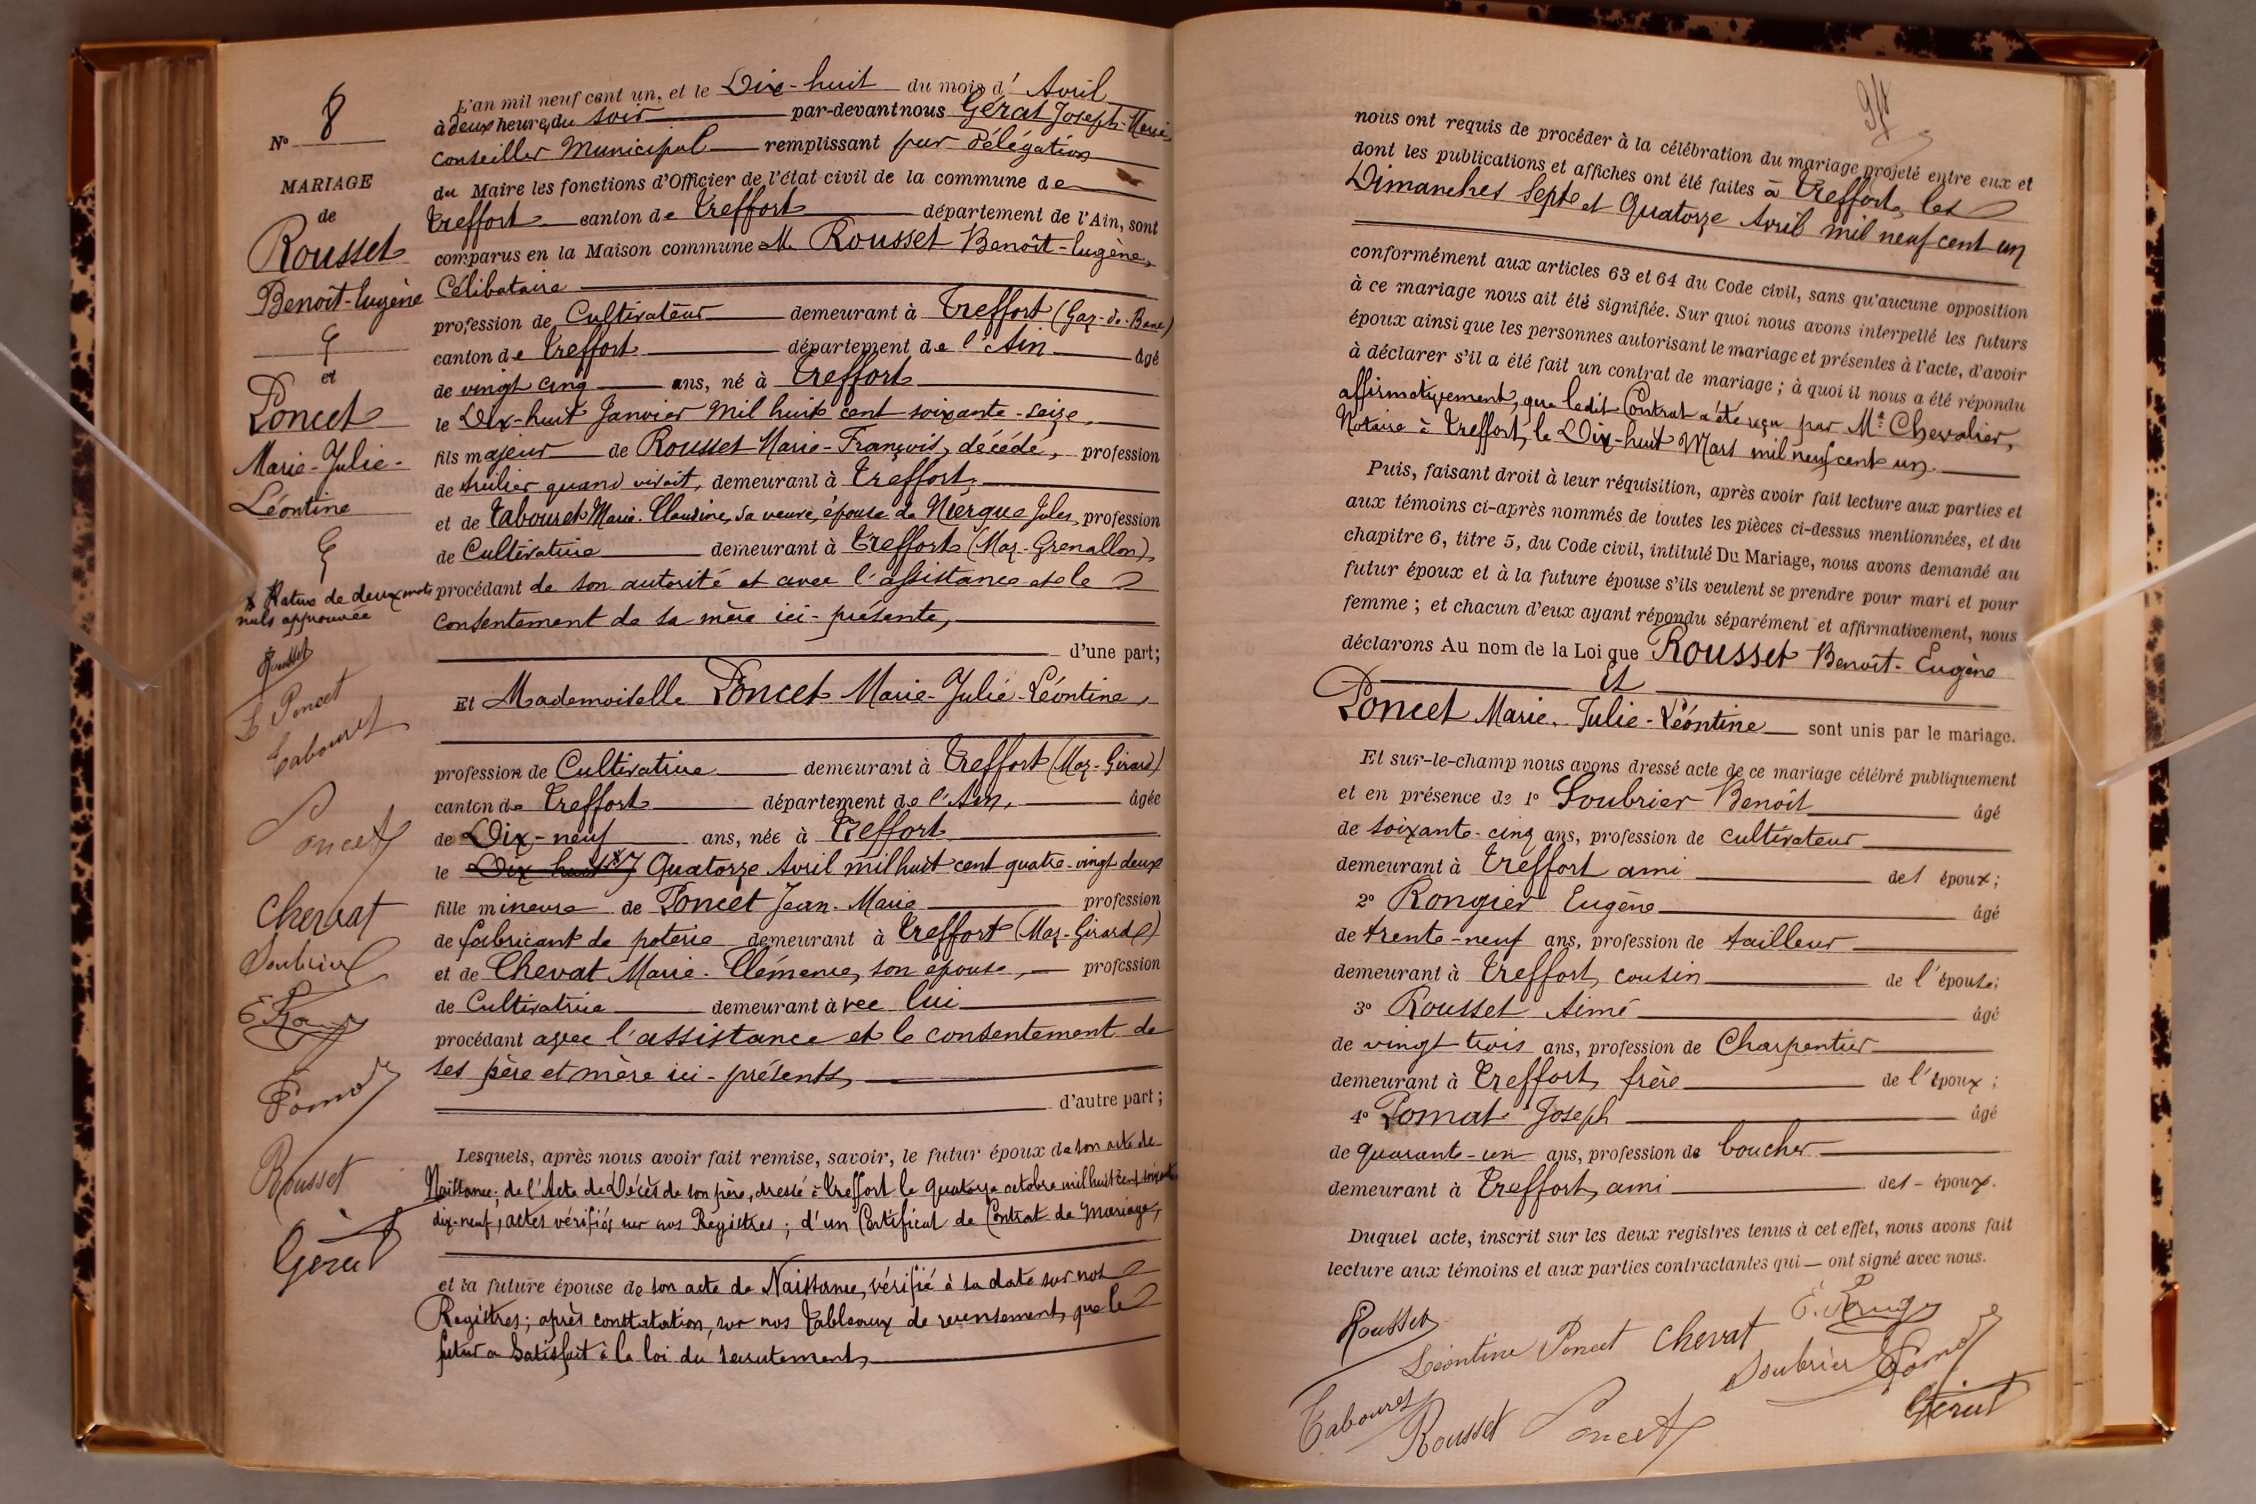 N° 8
MARIAGE
de
Rousset
Benoît-Eugène
et
Poncet
Marie-Julie-
Léontine
x Rature de deux mots
nuls approuvée
Rousset
L Poncet
Tabouret
Poncet
Chervat
Soubrier
Pomat
Rousset
Gérat
L'an mil neuf cent un, et le Dix-huit du mois d' Avril
à deux heures du soir par-devant nous Gérat Joseph-Marie
Conseiller Municipal remplissant par délégation
du Maire les fonctions d'Officier de l'état civil de la commune de
Treffort canton de Treffort département de l'Ain, sont
comparus en la Maison commune M. Rousset Benoît-Eugène,
Célibataire
profession de Cultivateur demeurant à Treffort (Gaz-de-Bane)
canton de Treffort département de l'Ain âgé
de vingt cinq ans, né à Treffort
le Dix-huit Janvier mil huit cent soixante-seize,
fils majeur de Rousset Marie-François, décédé, profession
de tuilier quand vivait, demeurant à Treffort,
et de Tabouret Marie-Claudine, sa veuve, épouse de Niergue Jules, profession
de Cultivatrice demeurant à Treffort (Maz-Grenallon),
procédant de son autorité et avec l'assistance et le
consentement de sa mère ici-présente,
d'une part;
Et Mademoiselle Poncet Marie-Julie-Léontine,
profession de Cultivatrice demeurant à Treffort (Maz-Girard)
canton de Treffort département de l'Ain, âgée
de Dix-neuf ans, née à Treffort
le Dix-huit x Quatorze Avril mil huit cent quatre-vingt deux
fille mineure de Poncet Jean-Marie profession
de fabricant de poterie demeurant à Treffort (Maz-Girard)
et de Chevat Marie-Clémence, son épouse, profession
de Cultivatrice demeurant avec lui
procédant avec l'assistance et le consentement de
ses père et mère ici-présents,
d'autre part;
Lesquels, après nous avoir fait remise, savoir, le futur époux de son acte de
Naissance; de l'Acte de Décès de son père, dressé à Treffort le quatorze octobre mil huit cent soixante
dix-neuf, actes vérifiés sur nos Registres; d'un Certificat de Contrat de Mariage,
et la future épouse de son acte de Naissance, vérifié à sa date sur nos
Registres; après constatation, sur nos Tableaux de recensement, que le
futur a satisfait à la loi du recrutement,
94
nous ont requis de procéder à la célébration du mariage projeté entre eux et
dont les publications et affiches ont été faites à Treffort, les
Dimanches Sept et Quatorze Avril mil neuf cent un
conformément aux articles 63 et 64 du Code civil, sans qu'aucune opposition
à ce mariage nous ait été signifiée. Sur quoi nous avons interpellé les futurs
époux ainsi que les personnes autorisant le mariage et présentes à l'acte, d'avoir
à déclarer s'il a été fait un contrat de mariage; à quoi il nous a été répondu
affirmativement, que ledit Contrat a été reçu par Me Chevalier,
Notaire à Treffort, le Dix-huit Mars mil neuf cent un.
Puis, faisant droit à leur réquisition, après avoir fait lecture aux parties et
aux témoins ci-après nommés de toutes les pièces ci-dessus mentionnées, et du
chapitre 6, titre 5, du Code civil, intitulé Du Mariage, nous avons demandé au
futur époux et à la future épouse s'ils veulent se prendre pour mari et pour
femme; et chacun d'eux ayant répondu séparément et affirmativement, nous
déclarons Au nom de la Loi que Rousset Benoît-Eugène
Et
Poncet Marie-Julie-Léontine sont unis par le mariage.
Et sur-le-champ nous avons dressé acte de ce mariage célébré publiquement
et en présence de 1° Soubrier Benoît âgé
de soixante-cinq ans, profession de cultivateur
demeurant à Treffort ami des époux;
2° Rongier Eugène âgé
de trente-neuf ans, profession de tailleur
demeurant à Treffort, cousin de l'épouse;
3° Rousset Aimé âgé
de vingt trois ans, profession de Charpentier
demeurant à Treffort, frère de l'époux;
4° Pomat Joseph âgé
de quarante-un ans, profession de boucher
demeurant à Treffort, ami des époux.
Duquel acte, inscrit sur les deux registres tenus à cet effet, nous avons fait
lecture aux témoins et aux parties contractantes qui ont signé avec nous.
Rousset
Léontine Poncet Chervat
Soubrier Pomat
Tabouret Rousset Poncet
Gérat